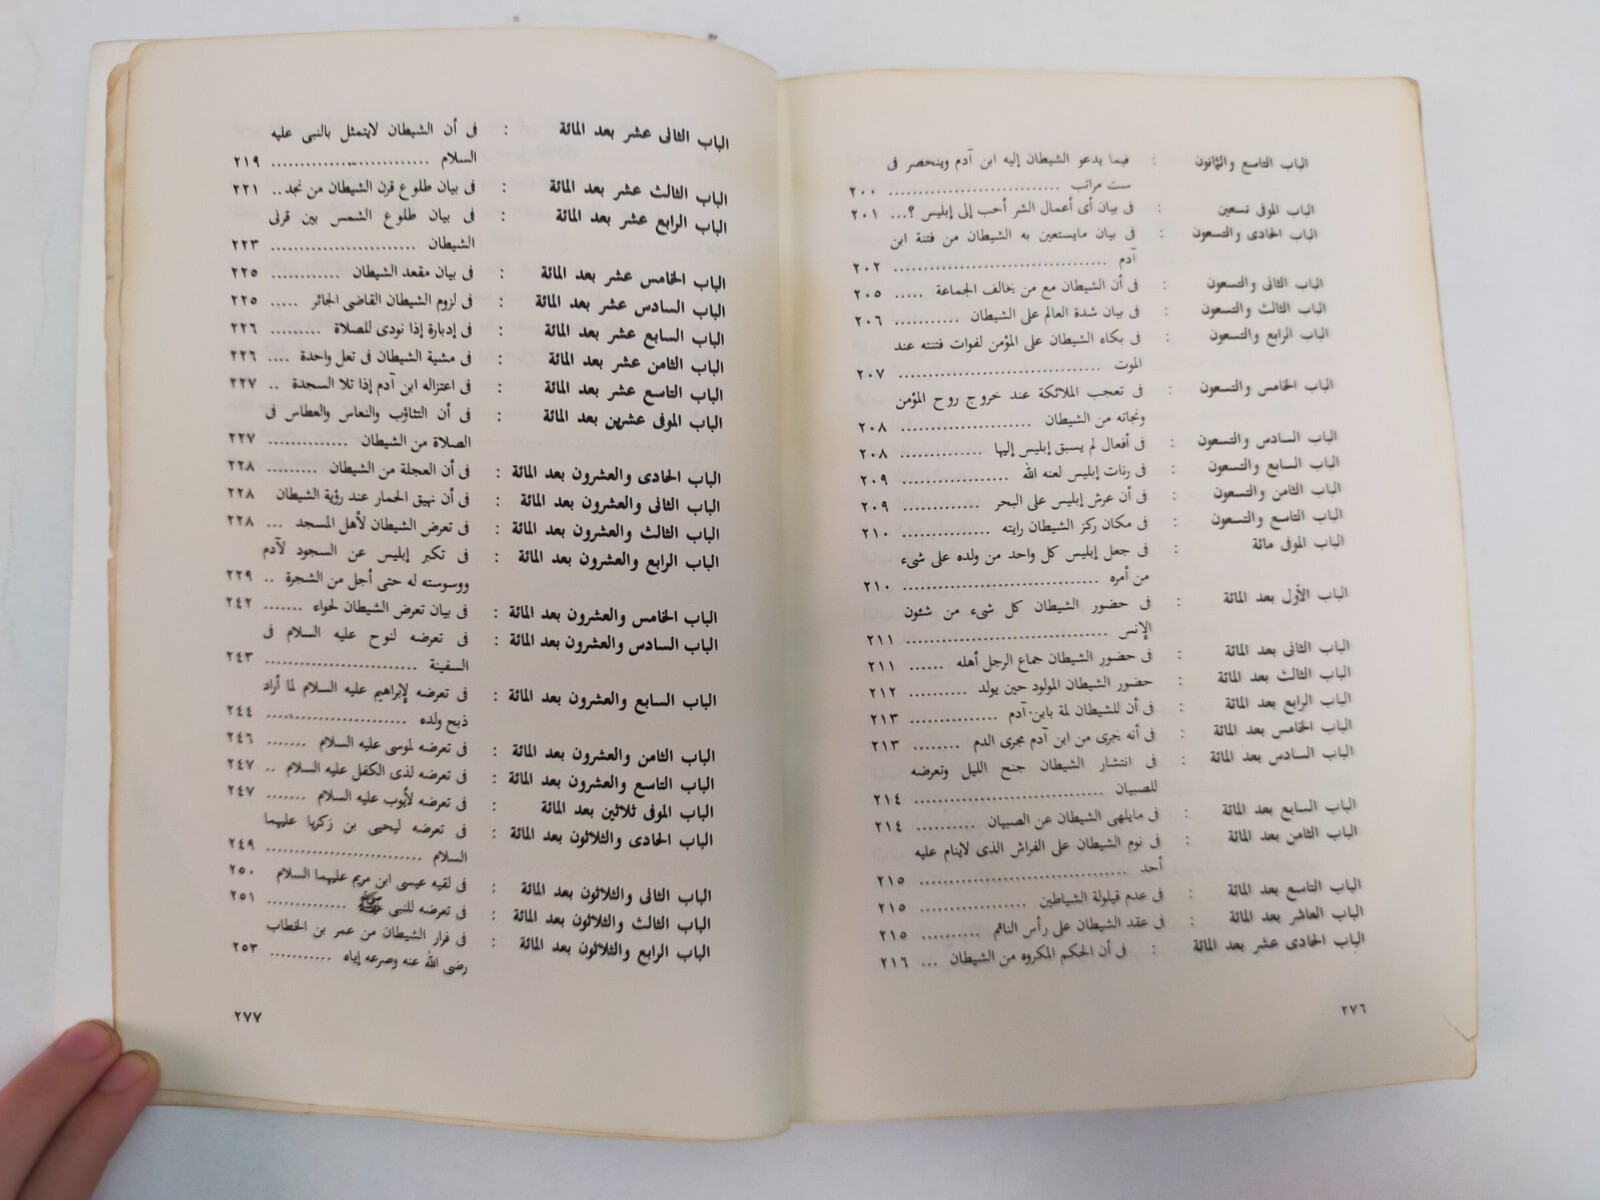 الباب التاسع والثمانون : فيما يدعو الشيطان إليه ابن آدم وينحصر فى
ست مراتب ............................ ٢٠٠
الباب الموفى تسعين : فى بيان أى أعمال الشر أحب إلى إبليس ؟... ٢٠١
الباب الحادى والتسعون : فى بيان مايستعين به الشيطان من فتنة ابن
آدم .................................. ٢٠٢
الباب الثانى والتسعون : فى أن الشيطان مع من يخالف الجماعة ..... ٢٠٥
الباب الثالث والتسعون : فى بيان شدة العالم على الشيطان ........... ٢٠٦
الباب الرابع والتسعون : فى بكاء الشيطان على المؤمن لفوات فتنته عند
الموت ................................. ٢٠٧
الباب الخامس والتسعون : فى تعجب الملائكة عند خروج روح المؤمن
ونجاته من الشيطان ...................... ٢٠٨
الباب السادس والتسعون : فى أفعال لم يسبق إبليس إليها .............. ٢٠٨
الباب السابع والتسعون : فى رنات إبليس لعنه الله .................. ٢٠٩
الباب الثامن والتسعون : فى أن عرش إبليس على البحر ............. ٢٠٩
الباب التاسع والتسعون : فى مكان ركز الشيطان رايته ............... ٢١٠
الباب الموفى مائة : فى جعل إبليس كل واحد من ولده على شىء
من أمره .............................. ٢١٠
الباب الأول بعد المائة : فى حضور الشيطان كل شىء من شئون
الإنس ................................. ٢١١
الباب الثانى بعد المائة : فى حضور الشيطان جماع الرجل أهله ...... ٢١١
الباب الثالث بعد المائة : حضور الشيطان المولود حين يولد .......... ٢١٢
الباب الرابع بعد المائة : فى أن للشيطان لمة بابن آدم ............... ٢١٣
الباب الخامس بعد المائة : فى أنه يجرى من ابن آدم مجرى الدم ........ ٢١٣
الباب السادس بعد المائة : فى انتشار الشيطان جنح الليل وتعرضه
للصبيان ............................... ٢١٤
الباب السابع بعد المائة : فى مايلهى الشيطان عن الصبيان .......... ٢١٤
الباب الثامن بعد المائة : فى نوم الشيطان على الفراش الذى لاينام عليه
أحد ................................... ٢١٥
الباب التاسع بعد المائة : فى عدم قيلولة الشياطين .................. ٢١٥
الباب العاشر بعد المائة : فى عقد الشيطان على رأس النائم .......... ٢١٥
الباب الحادى عشر بعد المائة : فى أن الحكم المكروه من الشيطان ... ٢١٦
٢٧٦
الباب الثانى عشر بعد المائة : فى أن الشيطان لايتمثل بالنبى عليه
السلام .......................... ٢١٩
الباب الثالث عشر بعد المائة : فى بيان طلوع قرن الشيطان من نجد.. ٢٢١
الباب الرابع عشر بعد المائة : فى بيان طلوع الشمس بين قرنى
الشيطان ........................ ٢٢٣
الباب الخامس عشر بعد المائة : فى بيان مقعد الشيطان ............ ٢٢٥
الباب السادس عشر بعد المائة : فى لزوم الشيطان القاضى الجائر ..... ٢٢٥
الباب السابع عشر بعد المائة : فى إدباره إذا نودى للصلاة ......... ٢٢٦
الباب الثامن عشر بعد المائة : فى مشية الشيطان فى نعل واحدة .... ٢٢٦
الباب التاسع عشر بعد المائة : فى اعتزاله ابن آدم إذا تلا السجدة .. ٢٢٧
الباب الموفى عشرين بعد المائة : فى أن التثاؤب والنعاس والعطاس فى
الصلاة من الشيطان .............. ٢٢٧
الباب الحادى والعشرون بعد المائة : فى أن العجلة من الشيطان ......... ٢٢٨
الباب الثانى والعشرون بعد المائة : فى أن نهيق الحمار عند رؤية الشيطان ٢٢٨
الباب الثالث والعشرون بعد المائة : فى تعرض الشيطان لأهل المسجد ... ٢٢٨
الباب الرابع والعشرون بعد المائة : فى تكبر إبليس عن السجود لآدم
ووسوسته له حتى أجل من الشجرة .. ٢٢٩
الباب الخامس والعشرون بعد المائة : فى بيان تعرض الشيطان لحواء ....... ٢٤٢
الباب السادس والعشرون بعد المائة : فى تعرضه لنوح عليه السلام فى
السفينة ......................... ٢٤٣
الباب السابع والعشرون بعد المائة : فى تعرضه لإبراهيم عليه السلام لما أراد
ذبح ولده ....................... ٢٤٤
الباب الثامن والعشرون بعد المائة : فى تعرضه لموسى عليه السلام ....... ٢٤٦
الباب التاسع والعشرون بعد المائة : فى تعرضه لذى الكفل عليه السلام .. ٢٤٧
الباب الموفى ثلاثين بعد المائة : فى تعرضه لأيوب عليه السلام ....... ٢٤٧
الباب الحادى والثلاثون بعد المائة : فى تعرضه ليحيى بن زكريا عليهما
السلام .......................... ٢٤٩
الباب الثانى والثلاثون بعد المائة : فى لقيه عيسى ابن مريم عليهما السلام ٢٥٠
الباب الثالث والثلاثون بعد المائة : فى تعرضه للنبى ﷺ ............. ٢٥١
الباب الرابع والثلاثون بعد المائة : فى فرار الشيطان من عمر بن الخطاب
رضى الله عنه وصرعه إياه ........... ٢٥٣
٢٧٧